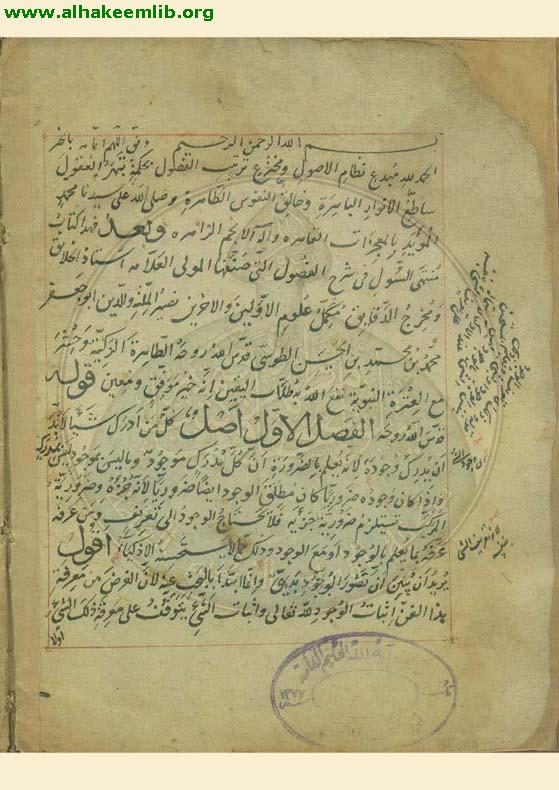 www.alhakeemlib.org
بسم الله الرحمن الرحيم وفق اللهم لاتمامه بالخير
الحمد لله مبدع نظام الاصول ومخترع ترتيب الفصول بحكمة تبهر العقول
ساطع الانوار الباهرة وخالق النفوس الطاهرة وصلى الله على سيدنا محمد
المؤيد بالمعجزات القاهرة وآله الانجم الزاهرة وبعد فهذا كتاب
منتهى السؤل في شرح الفصول التي صنفها المولى العلامه استاذ الخلايق
ومخرج الدقايق مكمل علوم الاولين والاخرين نصير الملة والدين ابو جعفر
محمد بن محمد بن الحسن الطوسي قدس الله روحه الطاهرة الزكية وحشره
مع العترة النبوية نفع الله به طلاب اليقين انه خير موفق ومعين قوله
قدس الله روحه الفصل الاول اصل كل من ادرك شيئا لابد
ان يدرك وجوده لانه يعلم بالضرورة ان كل مدرك موجود وما ليس بموجود ليس بمدرك
واذا كان وجوده ضروريا كان مطلق الوجود ايضا ضروريا لانه جزؤه وضرورية
المركب تستلزم ضرورية جزئه فلا يحتاج الوجود الى تعريف ومن عرفه
عرفه بما يعلم بالوجود او مع الوجود وذلك مما لا يستحسنه الاذكياء اقول
يريد ان يبين ان تصور الوجود بديهي وانما ابتدا بالبحث عنه لان الغرض من معرفة
هذا الفن اثبات الوجود لله تعالى واثبات الشيء يتوقف على معرفة ذلك الشيء
اولا
آية الله الحكيم العامة
١٣٧٧